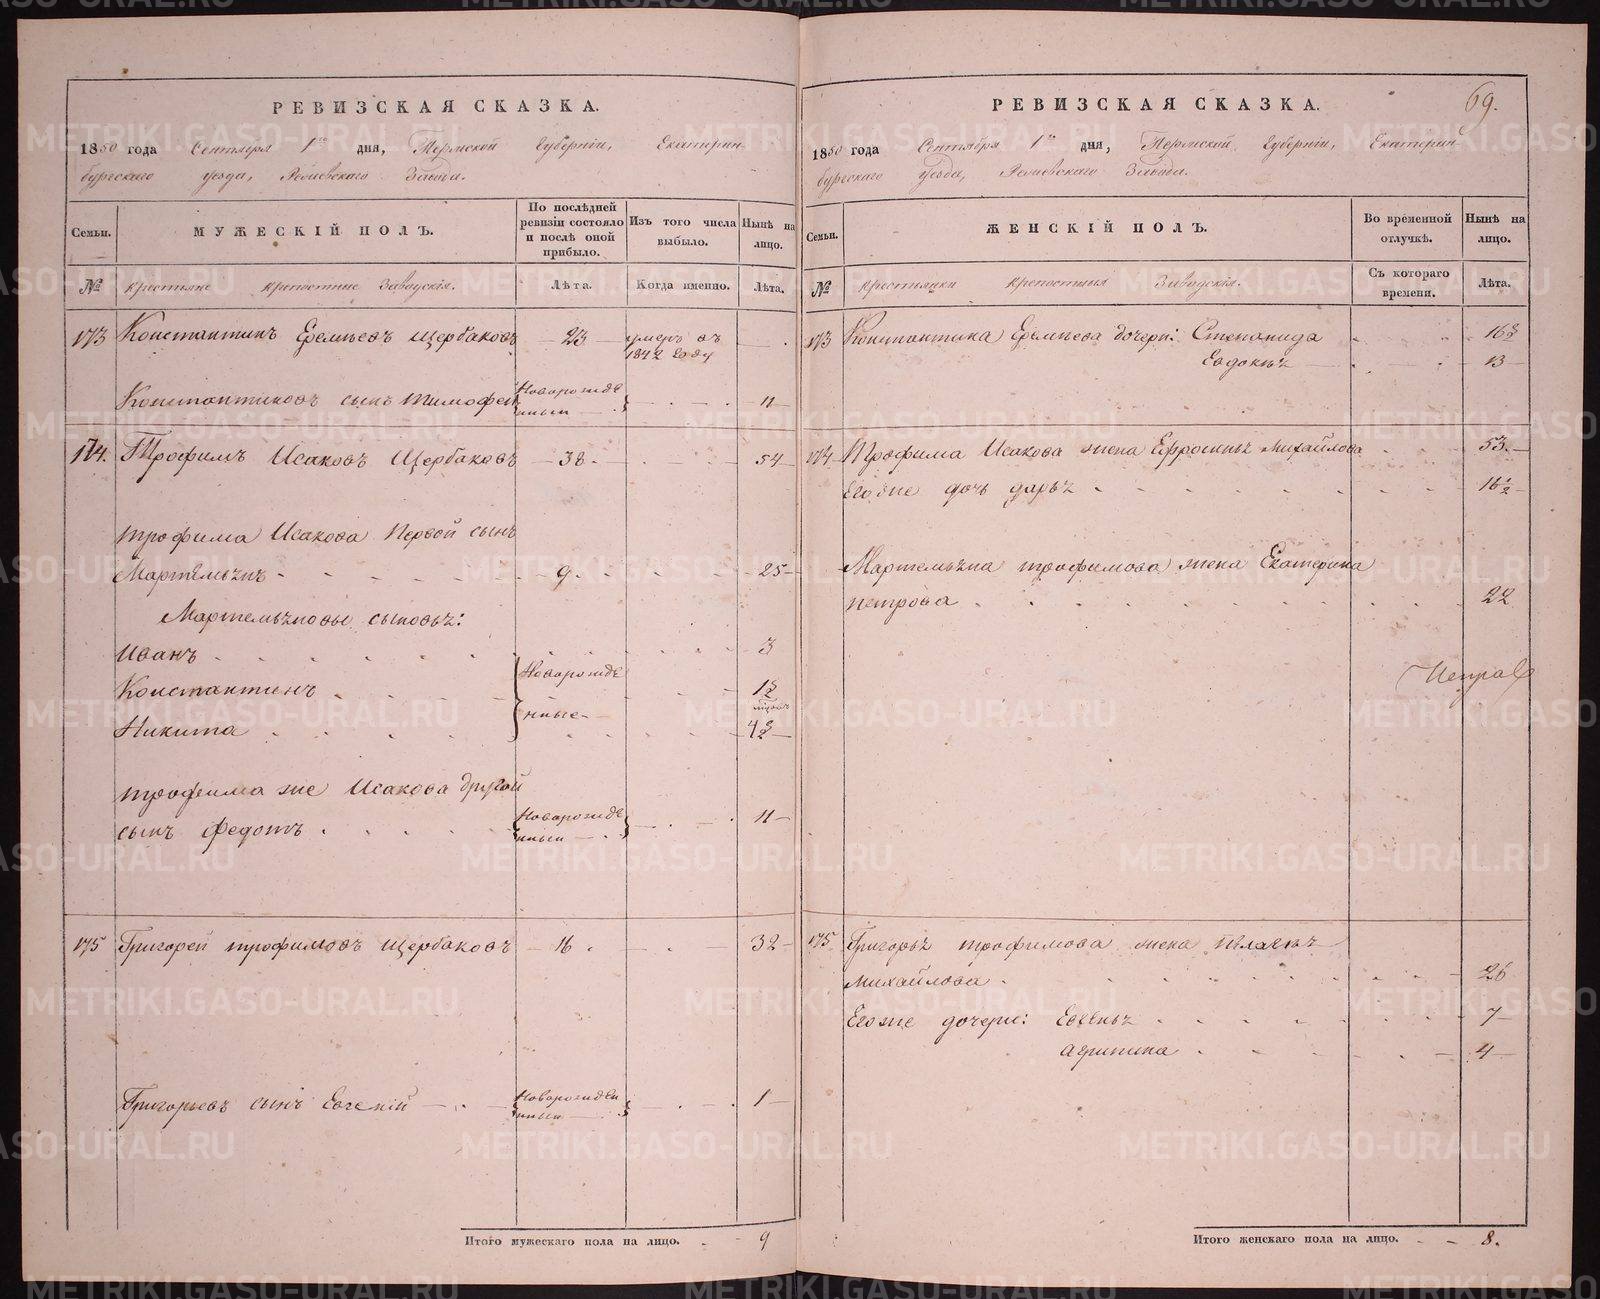 РЕВИЗСКАЯ СКАЗКА.
1850 года Сентября 1го дня, Пермской Губернiи, Екатерин
бургскаго уезда, Завода.
Семьи.
МУЖЕСКIЙ ПОЛЪ.
По послѣдней ревизiи состояло и послѣ оной прибыло.
Изъ того числа выбыло.
Нынѣ на лицо.
№
крестьяне крепостные Заводскiя.
Лѣта.
Когда именно.
Лѣта.
173 Константинъ Еремѣевъ Щербаковъ 23 умеръ въ
1842 Году
Константиновъ сынъ Тимофей Новорожде
нный 11
174. Трофимъ Исаковъ Щербаковъ 38. 54
Трофима Исакова Первой сынъ
Мартемьянъ 9. 25
Мартемьяновы сыновья:
Иванъ 3
Новорожде
Константинъ
нные
Никита
Трофима же Исакова другой
сынъ Федотъ Новорожде
нный 11
175 Григорей Трофимовъ Щербаковъ 16. 32
Григорьевъ сынъ Евгенiй Новорожден
ный 1
Итого мужескаго пола на лицо. 9
69.
РЕВИЗСКАЯ СКАЗКА.
1850 года Сентября 1го дня, Пермской Губернiи, Екатерин
бургскаго уезда, Завода.
Семьи.
ЖЕНСКIЙ ПОЛЪ.
Во временной отлучкѣ.
Нынѣ на лицо.
№
крестьянки крепостныя Заводскiя.
Съ котораго времени.
Лѣта.
173 Константина Еремѣева дочери: Степанида 16½
Евдокья 13
174 Трофима Исакова жена Ефросинья Михайлова 53.
Егоже дочь Дарья 16½
Мартемьяна Трофимова жена Екатерина
Петрова 22
175 Григорья Трофимова жена Пелагея
Михайлова. 26
Егоже дочери: Евгенья 7
Агрипина 4
Итого женскаго пола на лицо. 8.
METRIKI.GASO-URAL.RU